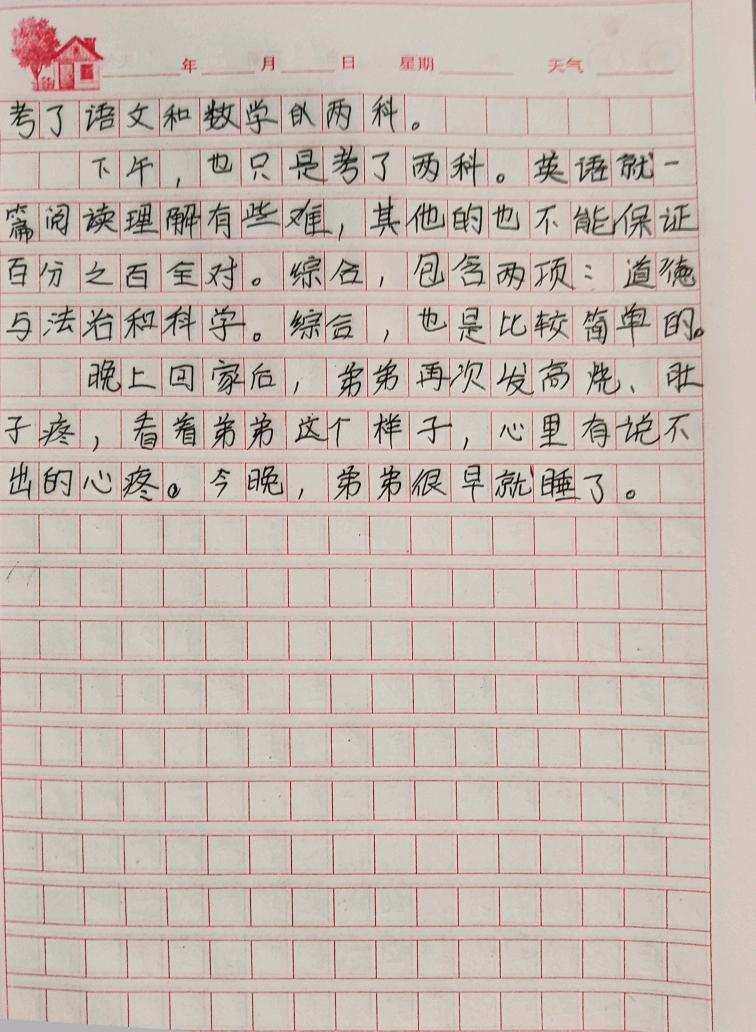 年 月 日 星期 天气
考了语文和数学的两科。
下午，也只是考了两科。英语就一
篇阅读理解有些难，其他的也不能保证
百分之百全对。综合，包含两项：道德
与法治和科学。综合，也是比较简单的。
晚上回家后，弟弟再次发高烧、肚
子疼，看着弟弟这个样子，心里有说不
出的心疼。今晚，弟弟很早就睡了。